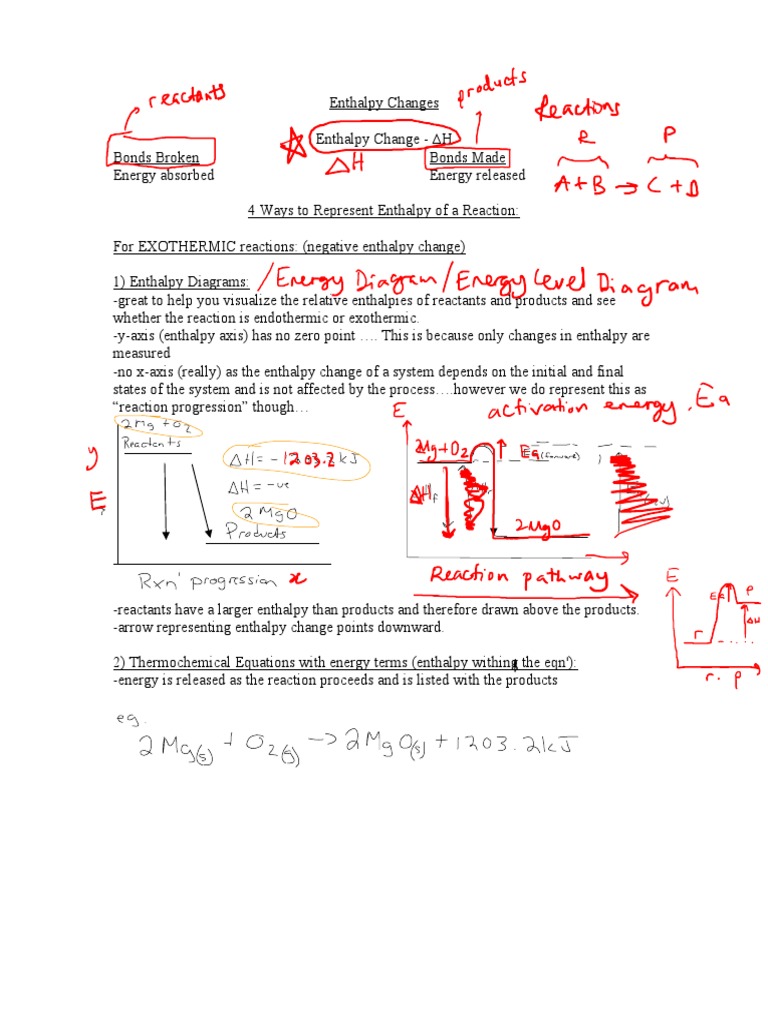 reactants
products
Enthalpy Changes
Reactions
Enthalpy Change - ΔH
R P
Bonds Broken ΔH Bonds Made
Energy absorbed Energy released
A+B → C+D
4 Ways to Represent Enthalpy of a Reaction:
For EXOTHERMIC reactions: (negative enthalpy change)
1) Enthalpy Diagrams: /Energy Diagram/Energy Level Diagram
-great to help you visualize the relative enthalpies of reactants and products and see
whether the reaction is endothermic or exothermic.
-y-axis (enthalpy axis) has no zero point …. This is because only changes in enthalpy are
measured
-no x-axis (really) as the enthalpy change of a system depends on the initial and final
states of the system and is not affected by the process….however we do represent this as
“reaction progression” though…
activation energy, Ea
2Mg + O2
Reactants
y
E
ΔH = -1203.2kJ
ΔH = -ve
2MgO
Products
Rxn' progression x
E
2Mg+O2
Ea (forward)
ΔHf
2MgO
Reaction pathway
E
Ea
P
ΔH
r
r. p
-reactants have a larger enthalpy than products and therefore drawn above the products.
-arrow representing enthalpy change points downward.
2) Thermochemical Equations with energy terms (enthalpy withing the eqn'):
-energy is released as the reaction proceeds and is listed with the products
eg.
2Mg(s) + O2(g) → 2MgO(s) + 1203.2kJ